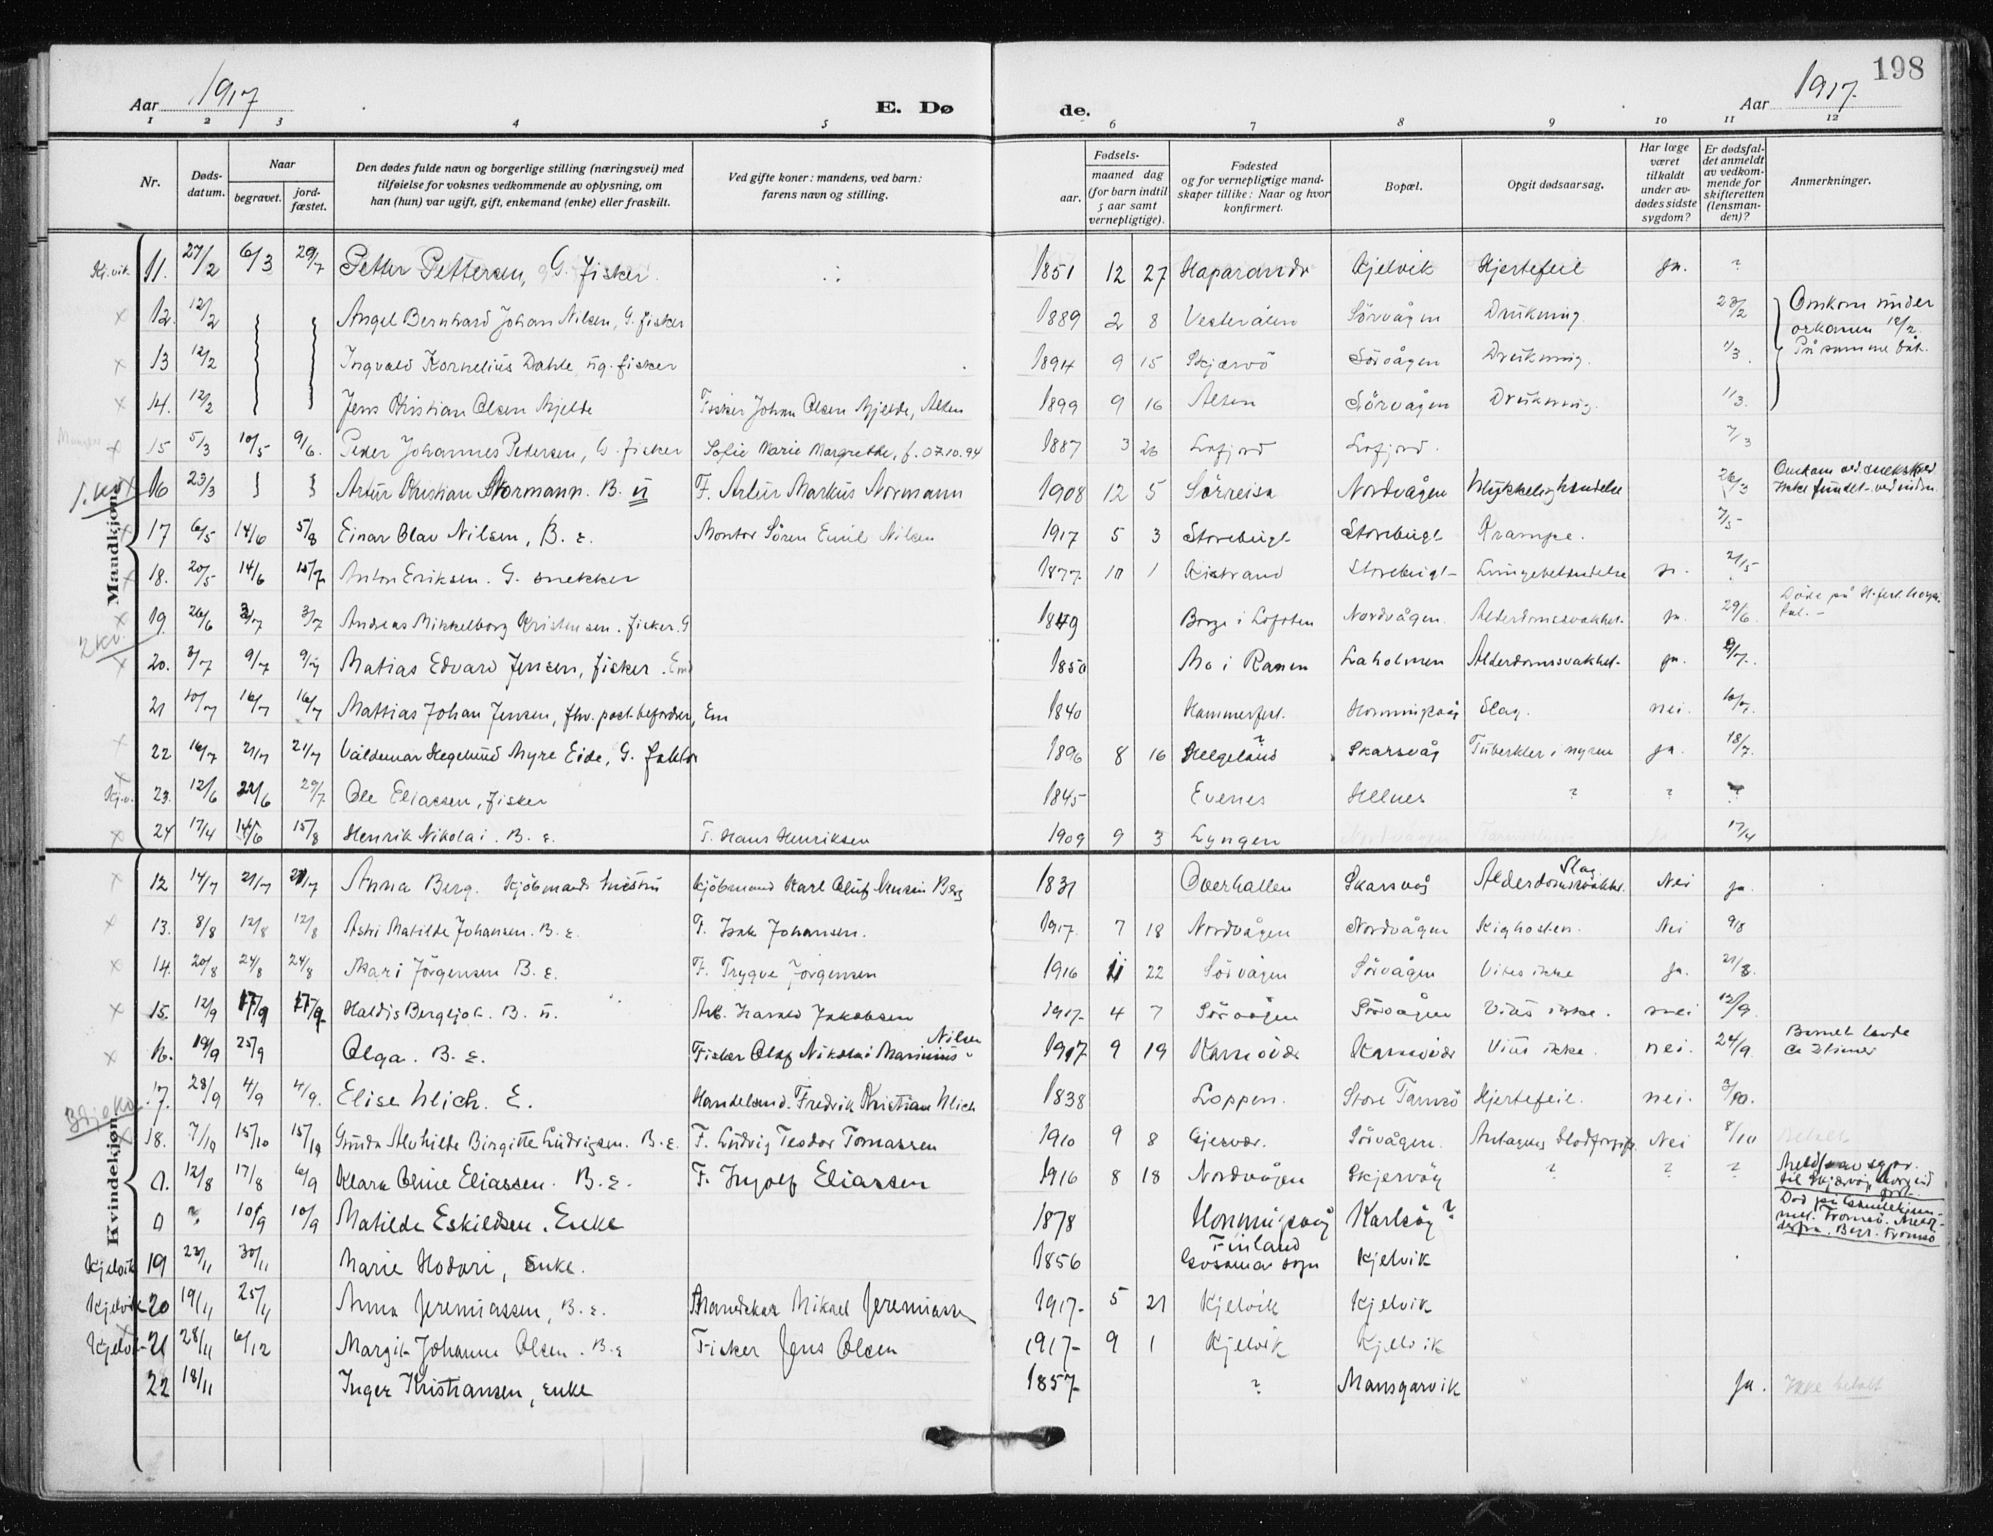 198
Aar 1917 E. Dø de. Aar 1917.
1 2 3 4 5 6 7 8 9 10 11 12
Nr. Døds-datum. Naar begravet. jord-fæstet. Den dødes fulde navn og borgerlige stilling (næringsvei) med tilføielse for voksnes vedkommende av oplysning, om han (hun) var ugift, gift, enkemand (enke) eller fraskilt. Ved gifte koner: mandens, ved barn: farens navn og stilling. Fødsels- aar. maaned dag (for barn indtil 5 aar samt vernepligtige). Fødested og for vernepligtige mand-skaper tillike: Naar og hvor konfirmert. Bopæl. Opgit dødsaarsag. Har læge været tilkaldt under av-dødes sidste sygdom? Er dødsfal-det anmeldt av vedkom-mende for skifteretten (lensman-den)? Anmerkninger.
Mandkjøn.
11. 27/2 6/3 29/7 Petter Pettersen, G. fisker. 1851 12 27 Haparanda Kjelvik Hjertefeil ja. ?
12. 12/2 Angel Bernhard Johan Nilsen, G. fisker 1889 2 8 Vesterålen Sörvågen Drukning. 23/2 Omkom under orkanen 12/2.
13 12/2 Ingvald Kornelius Dahle ug. fisker 1894 9 15 Skjærvö Sörvågen Drukning. 1/3. På samme båt.
14. 12/2 Jens Kristian Olsen Mjelde Fisker Johan Olsen Mjelde, Alten 1899 9 16 Alten Sörvågen Drukning. 1/3.
15 5/3 10/5 9/6. Peder Johannes Pedersen, G. fisker Sofie Marie Margrethe, f. 07.10.94 1887 3 26 Lafjord Lafjord. 7/3
16 23/3 Artur Kristian Normann. B. u F. Artur Markus Normann 1908 12 5 Sörreisa Nordvågen Ulykkelig hendelse 26/3 Omkom ved Ikke fundet
17 6/5 14/6 5/8 Einar Olav Nilsen, B. e. Montør Sören Emil Nilsen 1917 5 3 Storebugt Storebugt Krampe. 7/5
18. 20/5 14/6 15/7 Anton Eriksen. G. snekker 1877. 10 1 Kistrand Storebugt Lungebetændelse 21/5
19. 26/6 3/7 3/7 Andreas Mikkelborg Kristensen. fisker. G 1849 Borge i Lofoten Nordvågen. Alderdomssvakhet. ja. 29/6. Döde på H.fest
20. 3/7 9/7 9/7 Matias Edvard Jensen, fisker. Em 1850 Mo i Ranen Laholmen Alderdomssvakhet. ja. 9/7.
21 10/7 16/7 16/7 Mattias Johan Jensen, fhv. postbefordrer, Em 1840 Hammerfest. Honningsvåg Slag. nei. 10/7.
22 16/7 21/7 21/7 Valdemar Hegelund Myre Eide, G. faktor 1896 8 16 Helgeland ? Skarsvåg Tuberkler i nyren ja. 18/7.
Kj.v. 23. 12/6 22/6 29/7 Ole Eliassen, fisker 1845 Evenes Helnes ? ? ?
24 17/4 14/6 15/8 Henrik Nikolai. B. e. F. Hans Henriksen 1909 9 3 Lyngen Nordvågen 17/4
Kvindekjøn.
12 14/7 21/7 21/7 Anna Berg. Kjöbmands hustru Kjöbmand Karl Oluf Berg 1831 Overhallen Skarsvåg Alderdomssvakhet. Slag Nei ja.
13. 8/8 12/8 12/8 Astri Matilde Johansen. B. e. F. Isak Johansen. 1917. 7 18 Nordvågen Nordvågen Kighosten. Nei 9/8
14. 20/8 24/8 24/8 Mari Jörgensen B. e. F. Trygve Jörgensen 1916 11 22 Sörvågen Sörvågen Vites ikke ja. 21/8.
15. 12/9 17/9 17/9 Haldis Bergljot. B. u. Arb. Harald Jakobsen 1917. 4 7 Sörvågen Sörvågen Vites ikke. nei 12/9.
16. 19/9 25/9 Olga. B. e. Fisker Olaf Nikolai Marinius Nilsen 1917 9 19 Kamöivær Kamöivær Vites ikke. nei. 24/9. Barnet levde ca 2 timer
17. 28/9 4/9 4/9. Elise Ulich. E. Handelsmd. Fredrik Kristian Ulich 1838 Loppen. Store Tamsö Hjertefeil. nei. 3/10.
18. 7/10 15/10 15/10 Gunda Mathilde Birgitte Ludvigsen. B. e. F. Ludvig Teodor Tomassen 1910 9 8 Gjesvær. Sörvågen. Antagelig Blodforgift. Nei 8/10 Betalt
0. 12/8 17/8 6/9 Klara Oline Eliassen. B. e. F. Ingolf Eliassen 1916 8 18 Nordvågen Skjervöy ? ? ?
0 ? 10/9 10/9 Matilde Eskildsen. Enke 1878 Honningsvåg Karlsöy ?
Kjelvik 19 23/11 30/11 Marie Hodari, Enke. 1856 Finland sogn Kjelvik
Kjelvik 20 19/11 25/11 Anna Jeremiassen, B. e. Mandskar Mikael Jeremiassen 1917. 5 21 Kjelvik Kjelvik
Kjelvik 21 28/11 6/12 Margit Johanne Olsen. B. e Fisker Jens Olsen 1917. 9 1 Kjelvik Kjelvik
22 18/11 Inger Kristiansen, Enke 1857. ? Mansgarvik ja. Ikke betalt